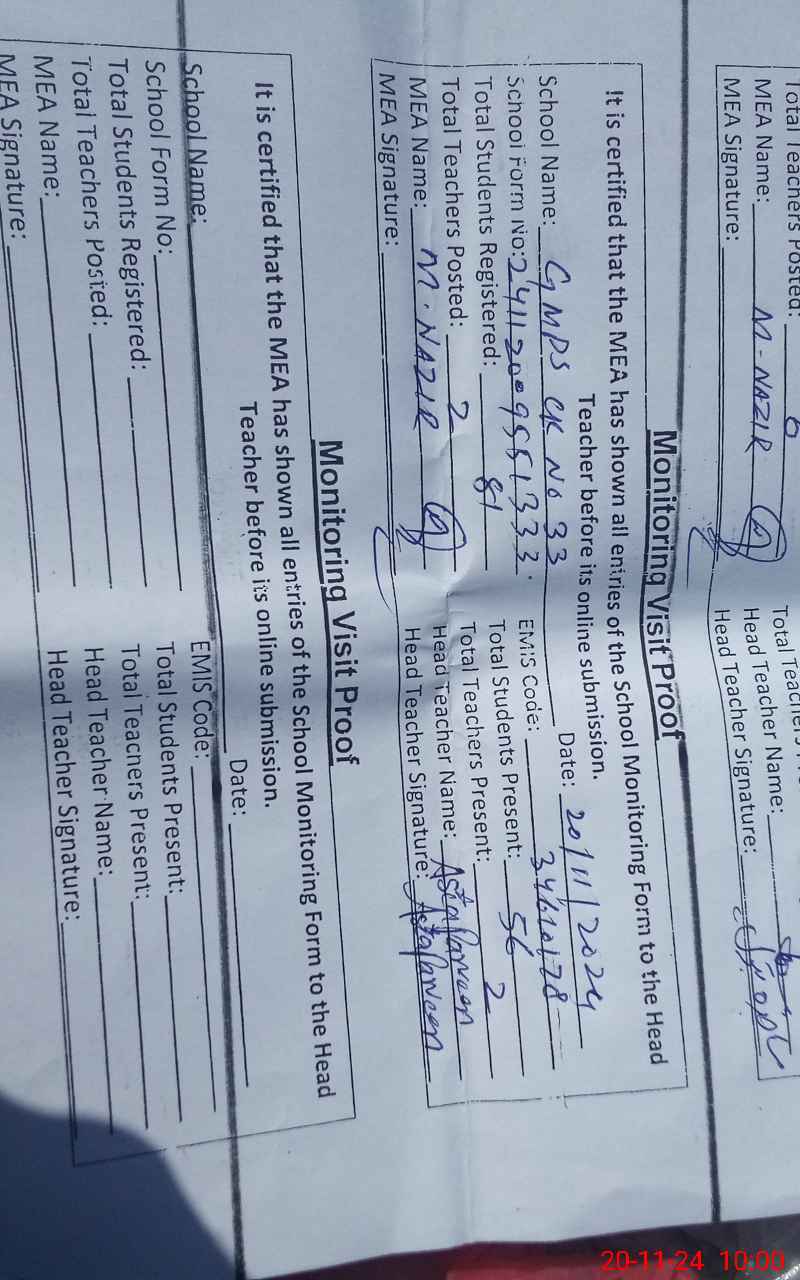 Total Teachers Posted: 6
MEA Name: M-NAZIR
Head Teacher Name:
MEA Signature:
Head Teacher Signature:
Monitoring Visit Proof
It is certified that the MEA has shown all entries of the School Monitoring Form to the Head
Teacher before its online submission.
Date: 20/11/2024
School Name: GMPS CK No 33
EMIS Code:
School Form No:
Total Students Present: 56
Total Students Registered: 81
Total Teachers Present: 2
Total Teachers Posted: 2
Head Teacher Name:
MEA Name: M. NAZIR
Head Teacher Signature:
MEA Signature:
Monitoring Visit Proof
It is certified that the MEA has shown all entries of the School Monitoring Form to the Head
Teacher before its online submission.
Date:
School Name:
EMIS Code:
School Form No:
Total Students Present:
Total Students Registered:
Total Teachers Present:
Total Teachers Posted:
Head Teacher Name:
MEA Name:
Head Teacher Signature:
MEA Signature:
20-11-24 10:00